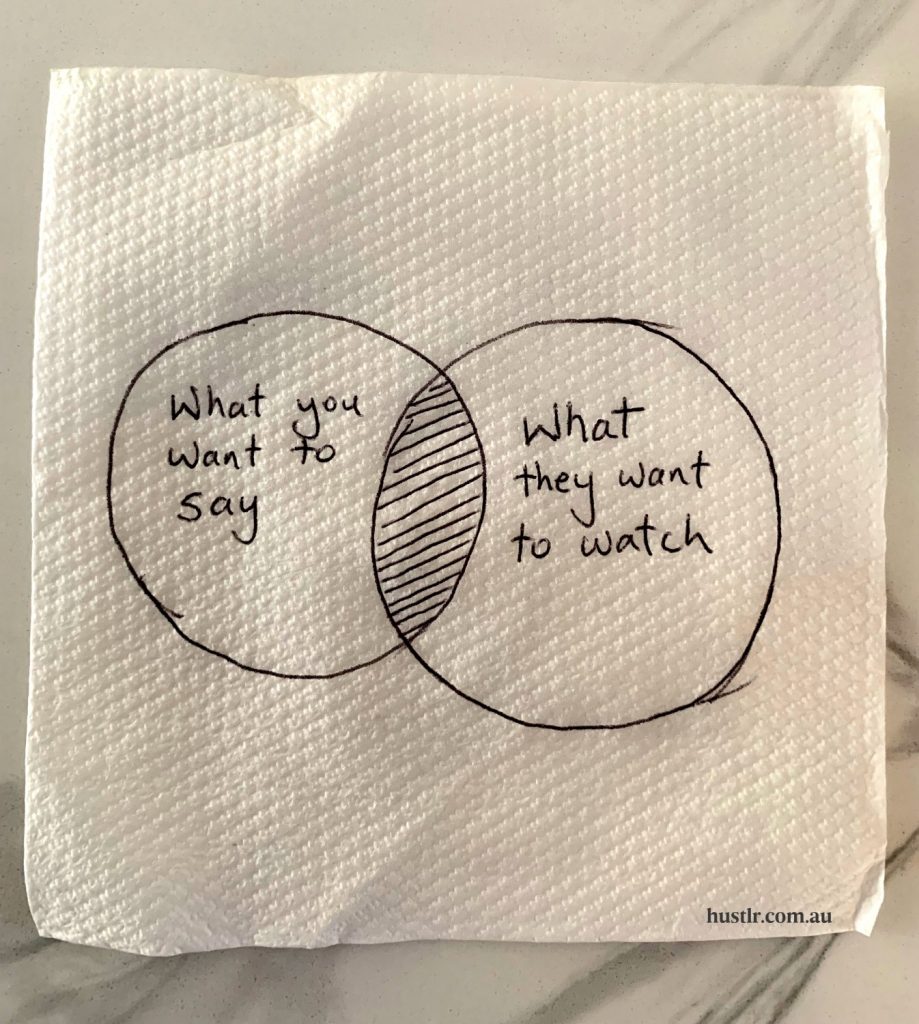 What you
want to
say
What
they want
to watch
hustlr.com.au